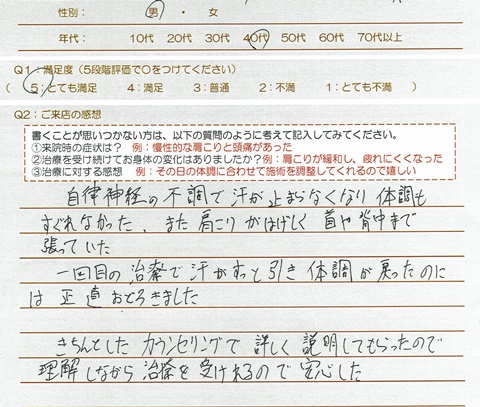 性別： 男 ・ 女
年代： 10代 20代 30代 40代 50代 60代 70代以上
Q1：満足度（5段階評価で○をつけてください）
（ 5：とても満足 4：満足 3：普通 2：不満 1：とても不満 ）
Q2：ご来店の感想
書くことが思いつかない方は、以下の質問のように考えて記入してみてください。
①来院時の症状は？ 例：慢性的な肩こりと頭痛があった
②治療を受け続けてお身体の変化はありましたか？例：肩こりが緩和し、疲れにくくなった
③治療に対する感想 例：その日の体調に合わせて施術を調整してくれるので嬉しい
自律神経の不調で汗が止まらなくなり 体調も
すぐれなかった、また肩こりがはげしく 首や背中まで
張っていた
一回目の治療で汗がすっと引き 体調が戻ったのに
は正直おどろきました
きちんとしたカウンセリングで 詳しく 説明してもらったので
理解しながら 治療を受けれるので安心した